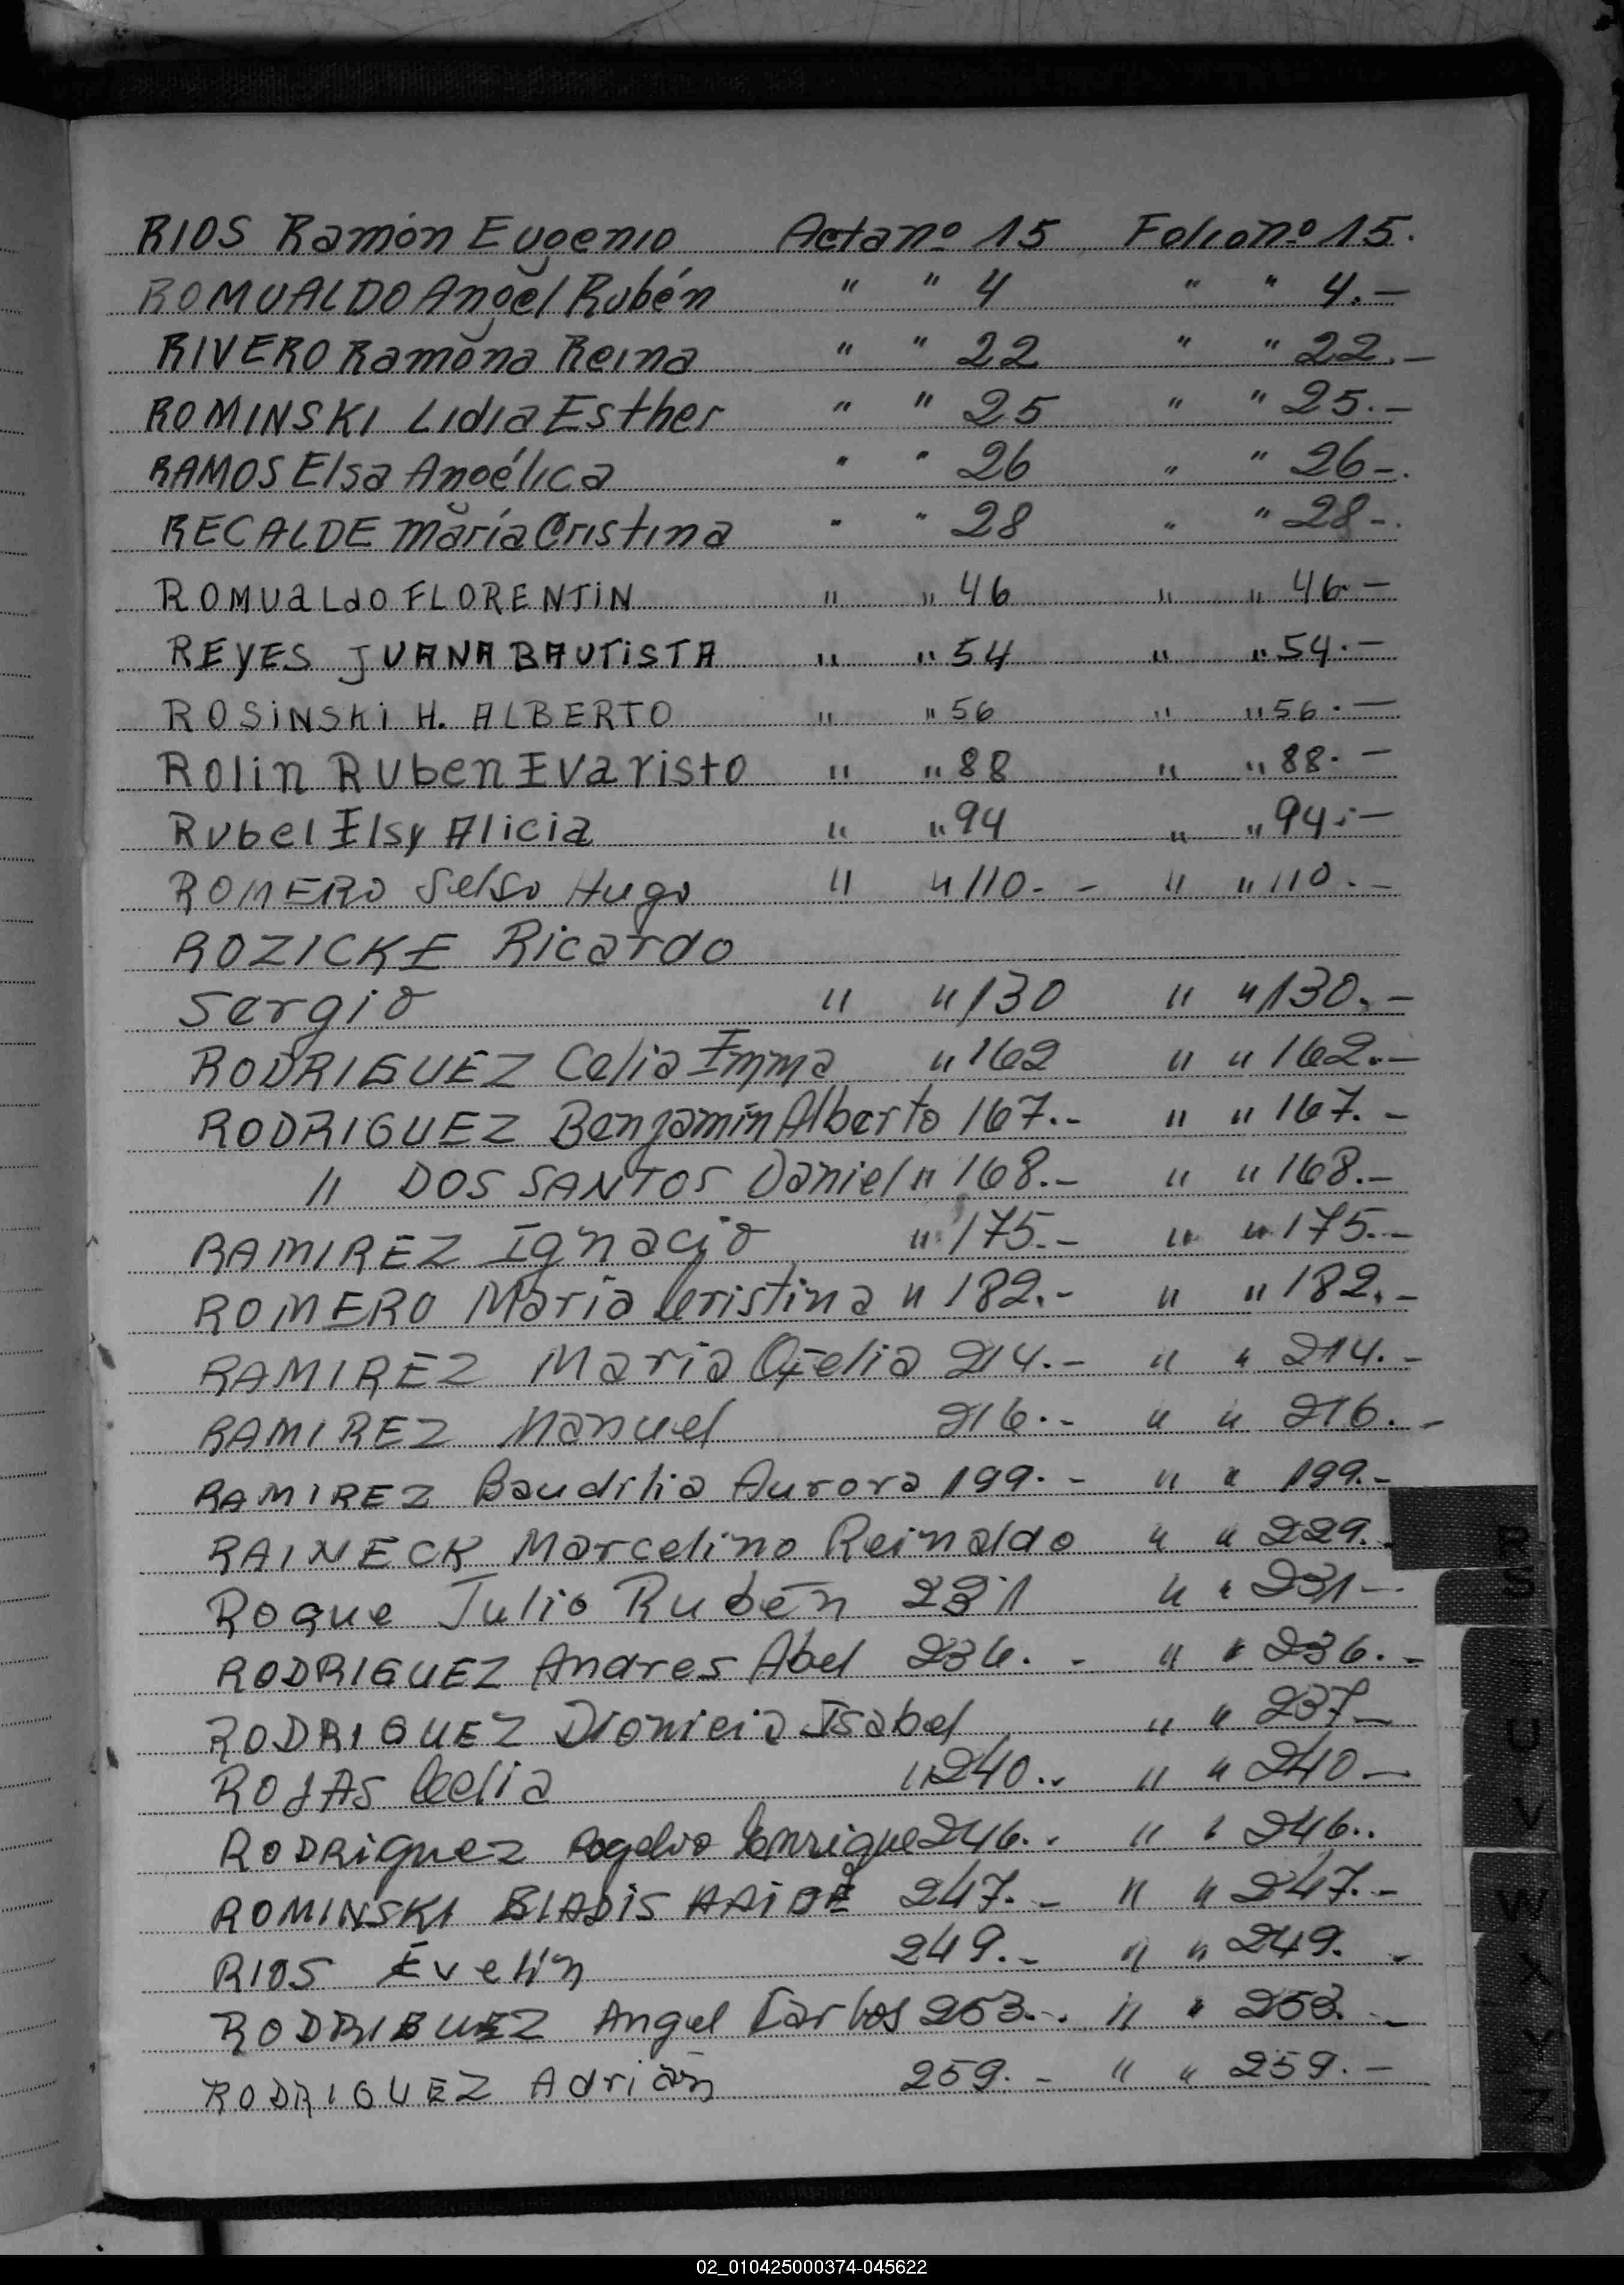 RIOS Ramón Eugenio Acta nº 15 Folio nº 15.
ROMUALDO Angel Rubén " " 4 " " 4.-
RIVERO Ramona Reina " " 22 " " 22.-
ROMINSKI Lidia Esther " " 25 " " 25.-
RAMOS Elsa Angélica " " 26 " " 26-.
RECALDE María Cristina " " 28 " " 28-.
ROMUaLdO FLORENTiN " " 46 " " 46.-
REYES JUANA BAUTiSTA " " 54 " " 54.-
ROSiNSKi H. ALBERTO " " 56 " " 56.-
Rolin Ruben Evaristo " " 88 " " 88.-
Rubel Elsy Alicia " " 94 " " 94.-
ROMERO Selso Hugo " " 110. - " " 110.-
ROZICKE Ricardo
Sergio " " 130 " " 130.-
RODRIGUEZ Celia Emma " 162 " " 162.-
RODRIGUEZ Benjamín Alberto 167.- " " 167.-
" DOS SANTOS Daniel " 168.- " " 168.-
RAMIREZ Ignacio " 175.- " " 175.-
ROMERO María Cristina " 182.- " " 182.-
RAMIREZ María Ofelia 214.- " " 214.-
RAMIREZ Manuel 216.- " " 216.-
RAMIREZ Baudilia Aurora 199.- " " 199.-
RAINECK Marcelino Reinaldo " " 229.
Roque Julio Rubén 231 " " 231-
RODRIGUEZ Andres Abel 236. - " " 236.-
RODRIGUEZ Isabel " " 237-
ROJAS Celia " 240.. " " 240-
RODRiguez Rogelio Enrique 246.. " " 246..
ROMINSKI HAiDÉ 247.- " " 247.-
RIOS Evelin 249.- " " 249. -
RODRIGUEZ Angel Carlos 253.-. " " 253. -
RODRIGUEZ Adrián 259.- " " 259.-
R
S
T
U
V
W
X
Y
Z
02_010425000374-045622